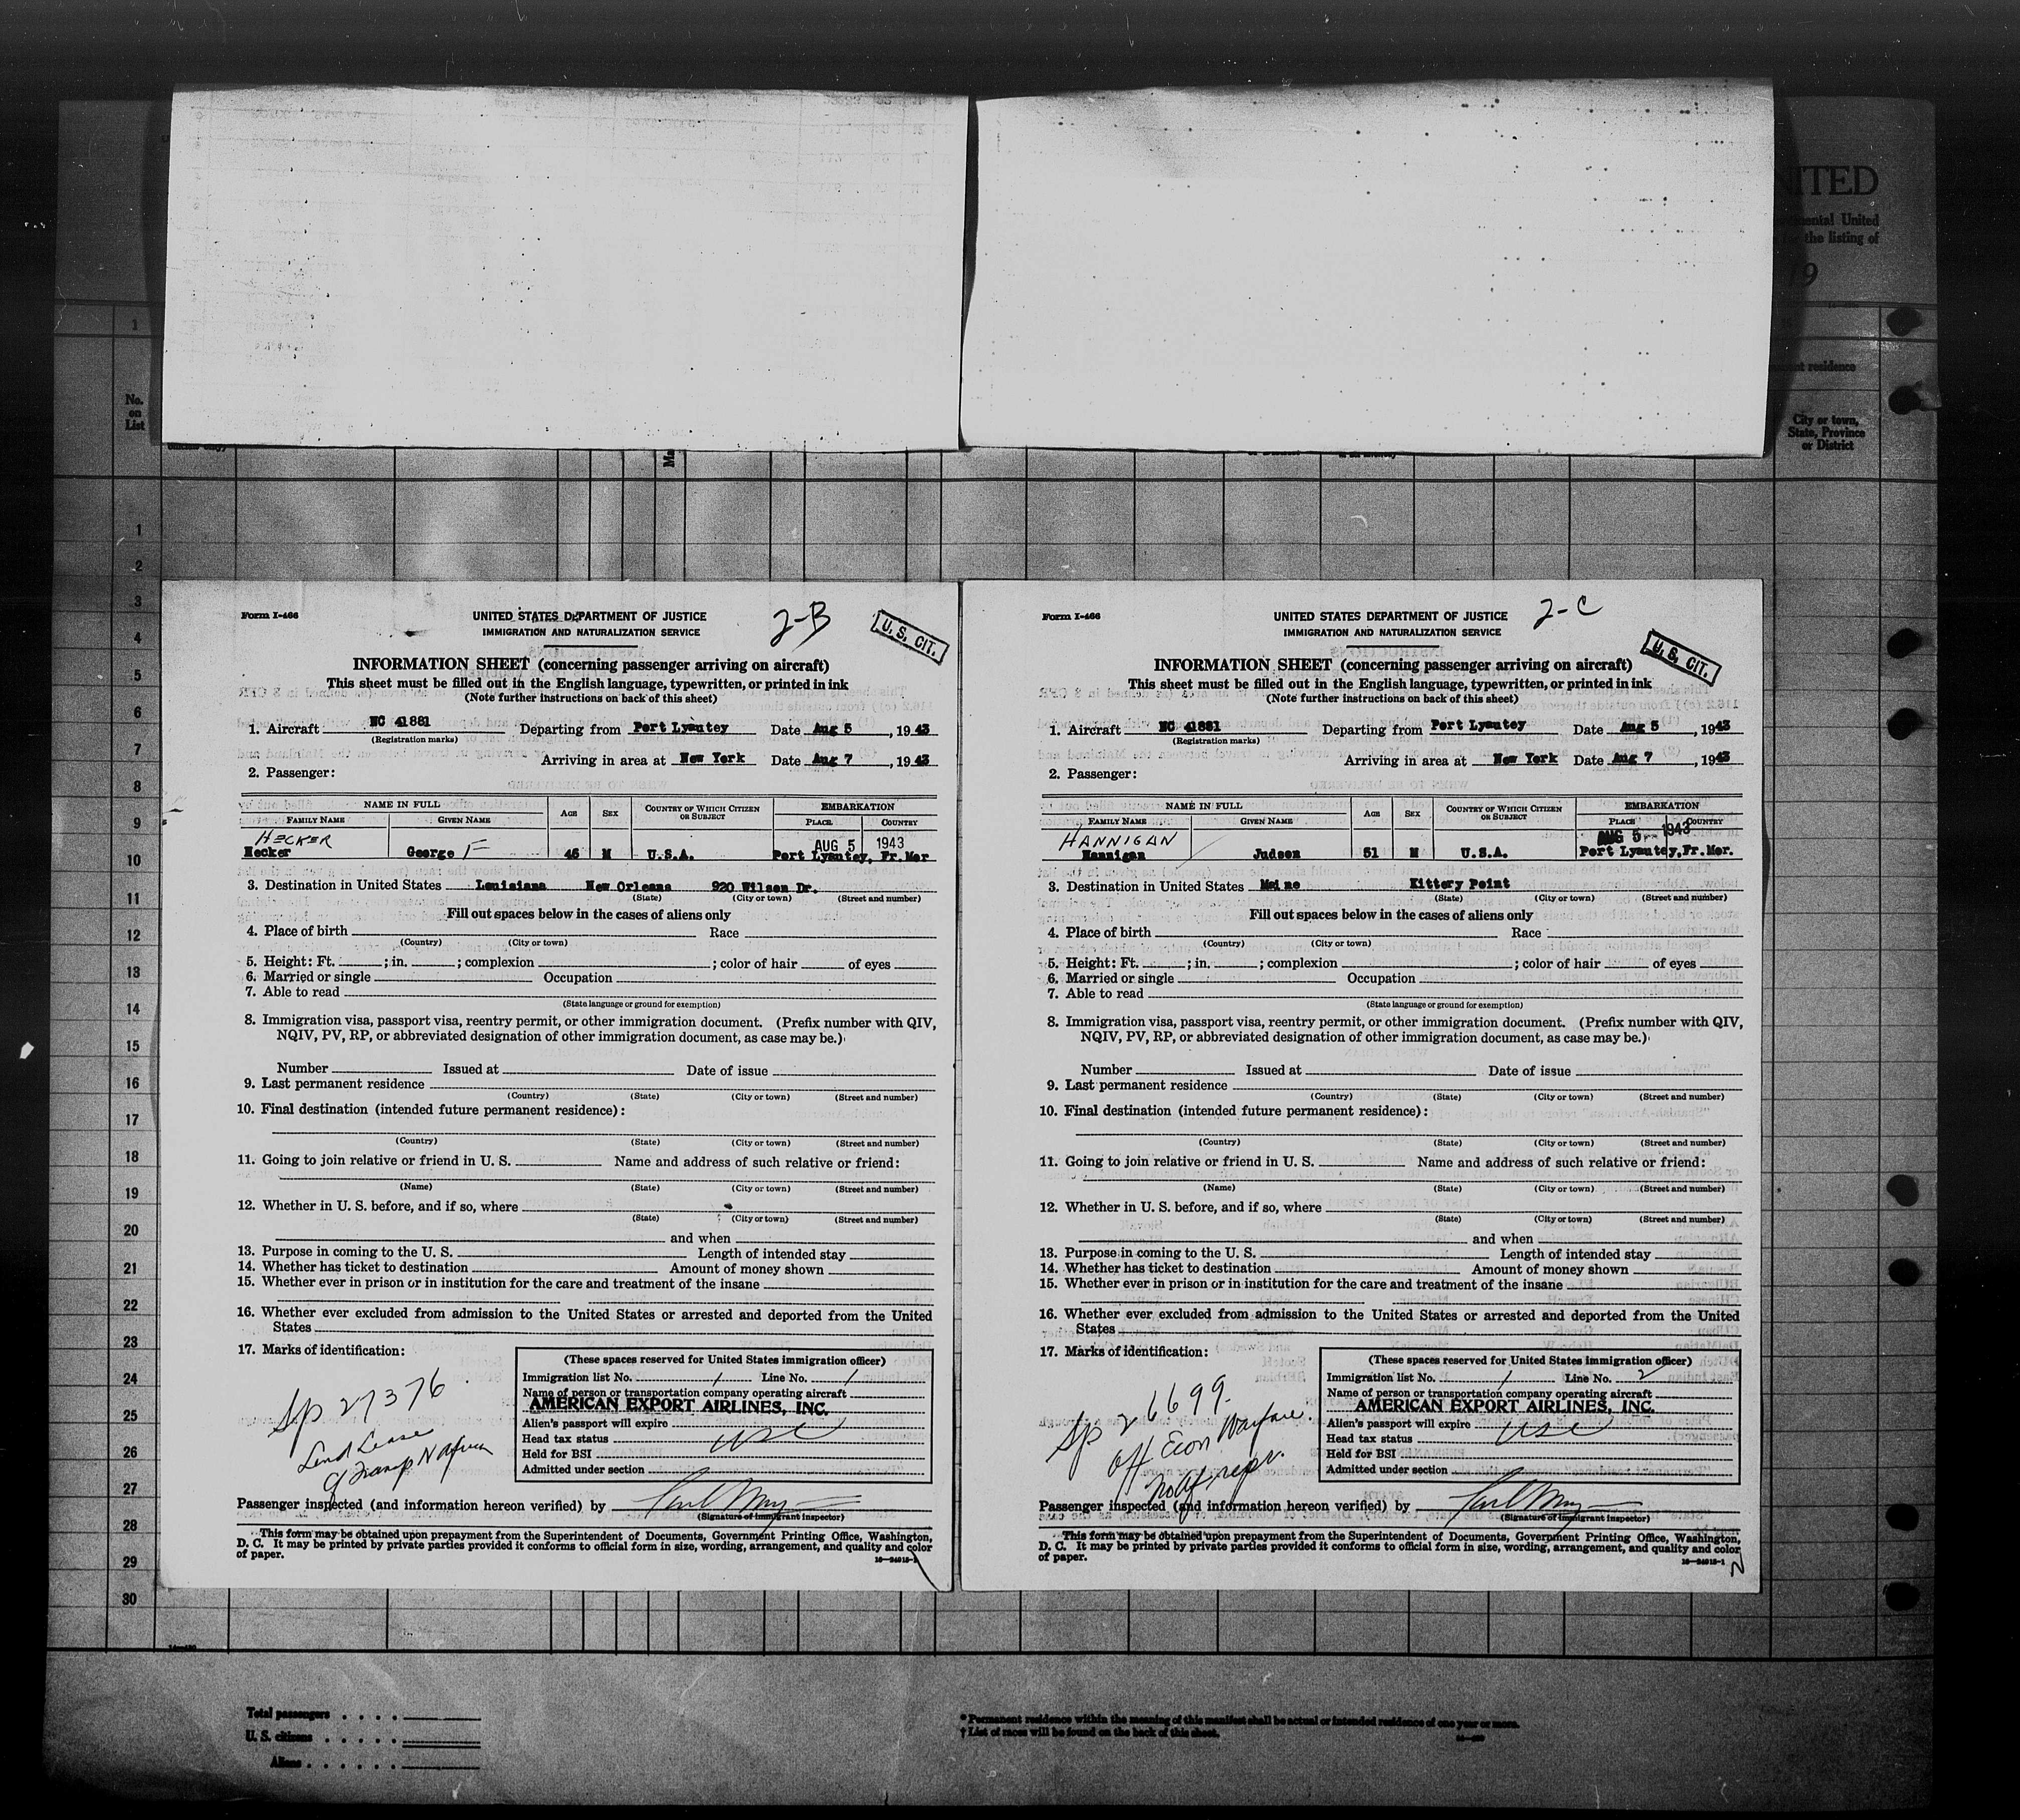 NITED
nental United
for the listing of
19
1
No.
on
List
nt residence
City or town,
State, Province
or District
1
2
3
4
5
6
7
8
9
10
11
12
13
14
15
16
17
18
19
20
21
22
23
24
25
26
27
28
29
30
Form I-466
UNITED STATES DEPARTMENT OF JUSTICE
2-B
U. S. CIT.
IMMIGRATION AND NATURALIZATION SERVICE
INFORMATION SHEET (concerning passenger arriving on aircraft)
This sheet must be filled out in the English language, typewritten, or printed in ink
(Note further instructions on back of this sheet)
1. Aircraft NC 41881 Departing from Port Lyautey Date Aug 5, 1943
(Registration marks)
Arriving in area at New York Date Aug 7, 1943
2. Passenger:
NAME IN FULL AGE SEX COUNTRY OF WHICH CITIZEN OR SUBJECT EMBARKATION
FAMILY NAME GIVEN NAME PLACE COUNTRY
HECKER AUG 5 1943
Hecker George F 46 M U.S.A. Port Lyautey, Fr.Mor
3. Destination in United States Louisiana New Orleans 920 Wilson Dr.
(State) (City or town) (Street and number)
Fill out spaces below in the cases of aliens only
4. Place of birth Race
(Country) (City or town)
5. Height: Ft. ; in. ; complexion ; color of hair of eyes
6. Married or single Occupation
7. Able to read
(State language or ground for exemption)
8. Immigration visa, passport visa, reentry permit, or other immigration document. (Prefix number with QIV,
NQIV, PV, RP, or abbreviated designation of other immigration document, as case may be.)
Number Issued at Date of issue
9. Last permanent residence
(Country) (State) (City or town) (Street and number)
10. Final destination (intended future permanent residence):
(Country) (State) (City or town) (Street and number)
11. Going to join relative or friend in U. S. Name and address of such relative or friend:
(Name) (State) (City or town) (Street and number)
12. Whether in U. S. before, and if so, where
(State) (City or town) (Street and number)
and when
13. Purpose in coming to the U. S. Length of intended stay
14. Whether has ticket to destination Amount of money shown
15. Whether ever in prison or in institution for the care and treatment of the insane
16. Whether ever excluded from admission to the United States or arrested and deported from the United
States
17. Marks of identification:
Sp 27376
Lend Lease
N Africa
(These spaces reserved for United States immigration officer)
Immigration list No. 1 Line No. 1
Name of person or transportation company operating aircraft
AMERICAN EXPORT AIRLINES, INC.
Alien's passport will expire
Head tax status USC
Held for BSI
Admitted under section
Passenger inspected (and information hereon verified) by
(Signature of immigrant inspector)
This form may be obtained upon prepayment from the Superintendent of Documents, Government Printing Office, Washington,
D. C. It may be printed by private parties provided it conforms to official form in size, wording, arrangement, and quality and color
of paper.
16—24915-1
Form I-466
UNITED STATES DEPARTMENT OF JUSTICE
2-C
U. S. CIT.
IMMIGRATION AND NATURALIZATION SERVICE
INFORMATION SHEET (concerning passenger arriving on aircraft)
This sheet must be filled out in the English language, typewritten, or printed in ink
(Note further instructions on back of this sheet)
1. Aircraft NC 41881 Departing from Port Lyautey Date Aug 5, 1943
(Registration marks)
Arriving in area at New York Date Aug 7, 1943
2. Passenger:
NAME IN FULL AGE SEX COUNTRY OF WHICH CITIZEN OR SUBJECT EMBARKATION
FAMILY NAME GIVEN NAME PLACE COUNTRY
HANNIGAN AUG 5 - 1943
Hannigan Judson 51 M U.S.A. Port Lyautey,Fr.Mor.
3. Destination in United States Maine Kittery Point
(State) (City or town) (Street and number)
Fill out spaces below in the cases of aliens only
4. Place of birth Race
(Country) (City or town)
5. Height: Ft. ; in. ; complexion ; color of hair of eyes
6. Married or single Occupation
7. Able to read
(State language or ground for exemption)
8. Immigration visa, passport visa, reentry permit, or other immigration document. (Prefix number with QIV,
NQIV, PV, RP, or abbreviated designation of other immigration document, as case may be.)
Number Issued at Date of issue
9. Last permanent residence
(Country) (State) (City or town) (Street and number)
10. Final destination (intended future permanent residence):
(Country) (State) (City or town) (Street and number)
11. Going to join relative or friend in U. S. Name and address of such relative or friend:
(Name) (State) (City or town) (Street and number)
12. Whether in U. S. before, and if so, where
(State) (City or town) (Street and number)
and when
13. Purpose in coming to the U. S. Length of intended stay
14. Whether has ticket to destination Amount of money shown
15. Whether ever in prison or in institution for the care and treatment of the insane
16. Whether ever excluded from admission to the United States or arrested and deported from the United
States
17. Marks of identification:
Sp 26699
Off Econ Warfare
No Af repr.
(These spaces reserved for United States immigration officer)
Immigration list No. 1 Line No. 2
Name of person or transportation company operating aircraft
AMERICAN EXPORT AIRLINES, INC.
Alien's passport will expire
Head tax status USC
Held for BSI
Admitted under section
Passenger inspected (and information hereon verified) by
(Signature of immigrant inspector)
This form may be obtained upon prepayment from the Superintendent of Documents, Government Printing Office, Washington,
D. C. It may be printed by private parties provided it conforms to official form in size, wording, arrangement, and quality and color
of paper.
16—24915-1
2
Total passengers
U. S. citizens
Aliens
* Permanent residence within the meaning of this manifest shall be actual or intended residence of one year or more.
† List of races will be found on the back of this sheet.